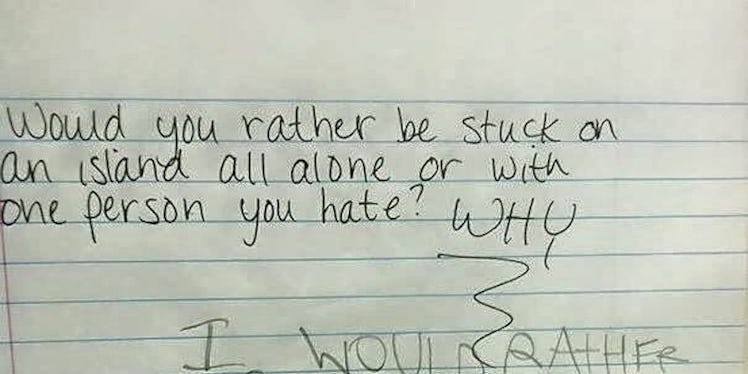 Would you rather be stuck on
an island all alone or with
one person you hate? WHY
I WOULD RATHER